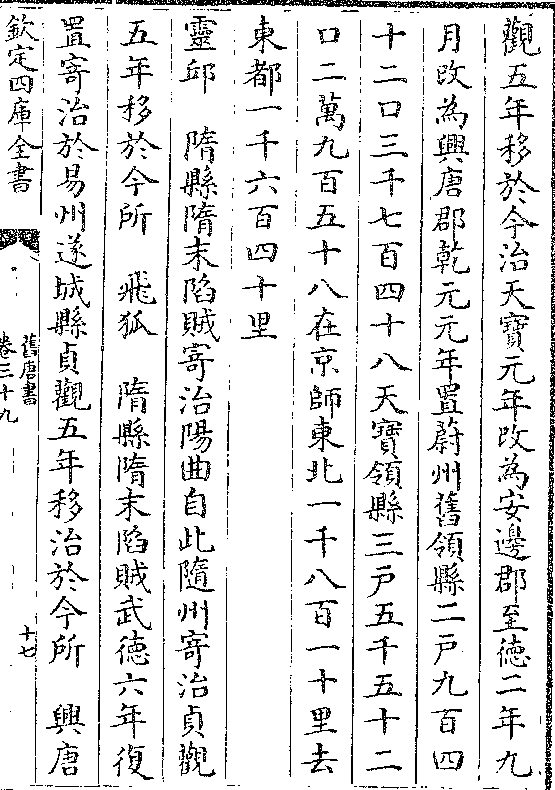 觀五年移於今治天寶元年改為安邊郡至德二年九
月改為興唐郡乾元元年置蔚州舊領縣二戸九百四
十二口三千七百四十八天寶領縣三戸五千五十二
口二萬九百五十八在京師東北一千八百一十里去
東都一千六百四十里
靈邱　隋縣隋末陷賊寄治陽曲自此隨州寄治貞觀
五年移於今所　飛狐　隋縣隋末陷賊武德六年復
置寄治於易州遂城縣貞觀五年移治於今所　興唐
欽定四庫全書
舊唐書
卷三十九
十七